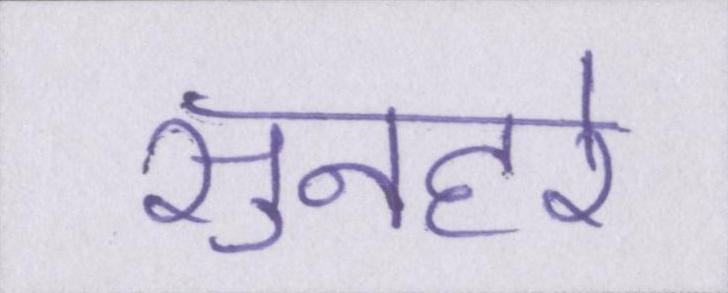 सुनहरे